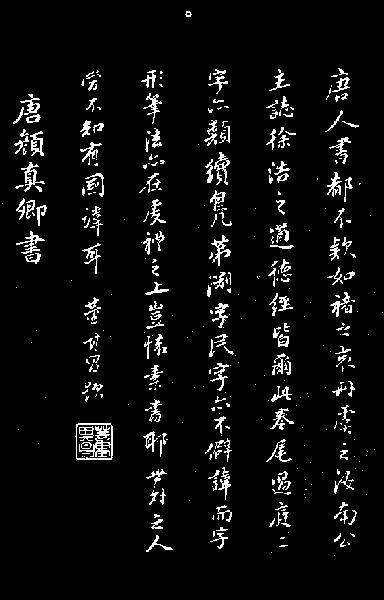 唐人書都不款如褚之哀冊虞之汝南公
主誌徐浩之道德經皆爾此卷尾過庭二
字亦類續鳧第淵字民字亦不僻諱而字
形筆法亦在虔禮之上豈懷素書耶世人
嘗不知有國諱耳 董其昌題
唐顏真卿書